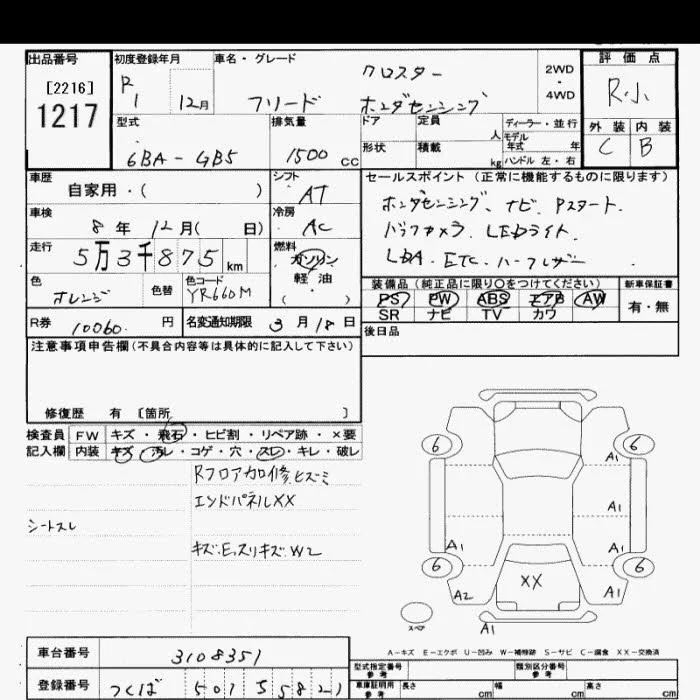 出品番号
[2216]
1217
初度登録年月
R1 12月
車名・グレード
フリード クロスター ホンダセンシング
2WD・4WD
評価点
R小
外装 内装
C B
型式
6BA-GB5
排気量
1500cc
ドア 定員 人
形状 積載 kg
ディーラー・並行
モデル年式 年
ハンドル 左・右
車歴
自家用・( )
シフト
AT
車検
8年12月( 日)
冷房
AC
走行
5万3千875km
燃料
ガソリン
軽油
( )
色
オレンジ
色替
色コード
YR660M
R券 10060円
名変通知期限 3月18日
セールスポイント(正常に機能するものに限ります)
ホンダセンシング、ナビ、Pスタート、
バックカメラ、LEDライト、
LDA、ETC、ハーフレザー
装備品(純正品に限り○をつけてください)
新車保証書
PS PW ABS エアB AW
SR ナビ TV カワ
有・無
後日品
注意事項申告欄(不具合内容等は具体的に記入して下さい)
修復歴 有 [箇所 ]
検査員記入欄
FW キズ・飛石・ヒビ割・リペア跡・×要
内装 キズ・汚レ・コゲ・穴・スレ・キレ・破レ
Rフロア加修、ヒズミ
エンドパネルXX
シートスレ
キズ、E、スリキズ、W2
6 6
A1
A1
A1 A1
6 6
A2 XX A1
スペア
A1
A-キズ E-エクボ U-凹み W-補修跡 S-サビ C-腐食 XX-交換済
車台番号 3108351
登録番号 つくば 501 5 5821
型式指定番号 参考
類別区分番号 参考
車庫証明用 参考 長さ cm 幅 cm 高さ cm